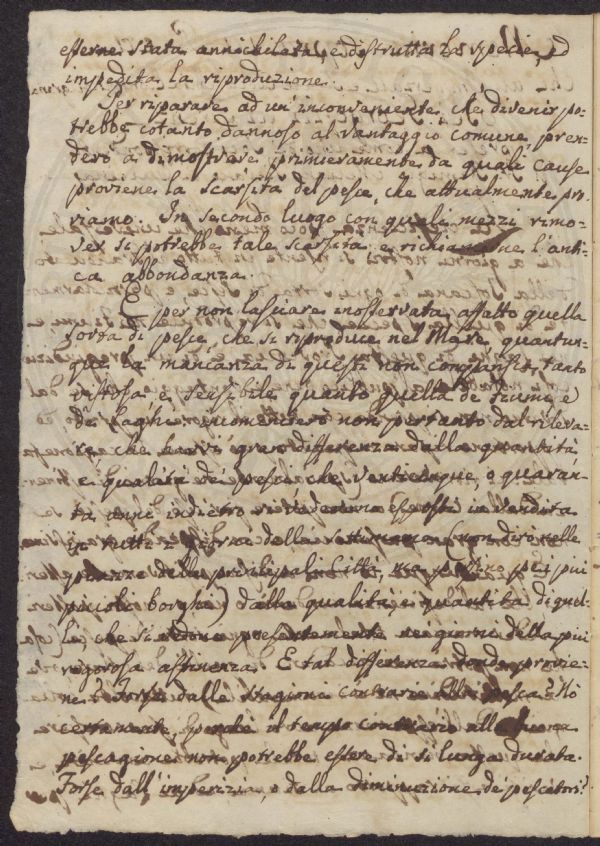 esserne stata annichilata, e distrutta la specie, ed
impedita la riproduzione.
Per riparare ad un' inconveniente, che divenir po-
trebbe cotanto dannoso al vantaggio comune, pren-
derò a dimostrare primieramente da quali cause
proviene la scarsità del pesce, che attualmente pro-
viamo. In secondo luogo con quale mezzi rimo-
ver si potrebbe tale scarsità e richiamarne l'anti-
ca abbondanza.
E per non lasciare inosservata affatto quella
sorta di pesce, che si riproduce nel Mare, quantun-
que la mancanza di questi non comparisce tanto
vistosa e sensibile quanto quella de' fiumi, e
de' laghi, incomincierò non pertanto dal rileva-
re, che havvi gran differenza dalla quantità
e qualità dei pesci che venticinque, o quaran-
ta anni indietro si vedevano esposti in vendita
in tutti i giorni della settimana (non dirò nelle
piazze delle principali Città, ma perfino nei più
piccoli borghi) dalla qualità, e quantità di quel-
li, che si vedono presentemente ne' giorni della più
rigorosa astinenza. E tal differenza donde provie-
ne? Forse dalle stagioni contrarie alla pesca? Nò
certamente, perchè il tempo contrario alla buona
pescagione non potrebbe essere di sì lunga durata.
Forse dall' imperizia, o dalla diminuzione de' pescatori?